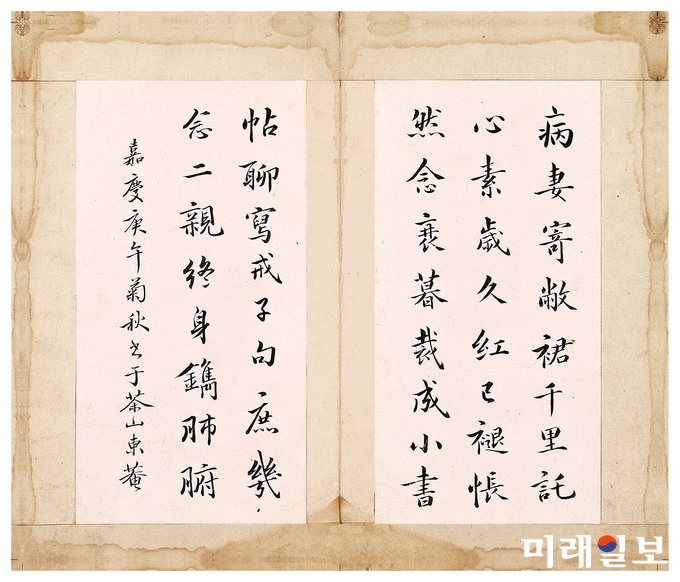 病妻寄敝裙千里託
心素歲久紅已褪悵
然念衰暮裁成小書
帖聊寫戒子句庶幾
念二親終身鐫肺腑
嘉慶庚午菊秋書于茶山東菴
미래일보